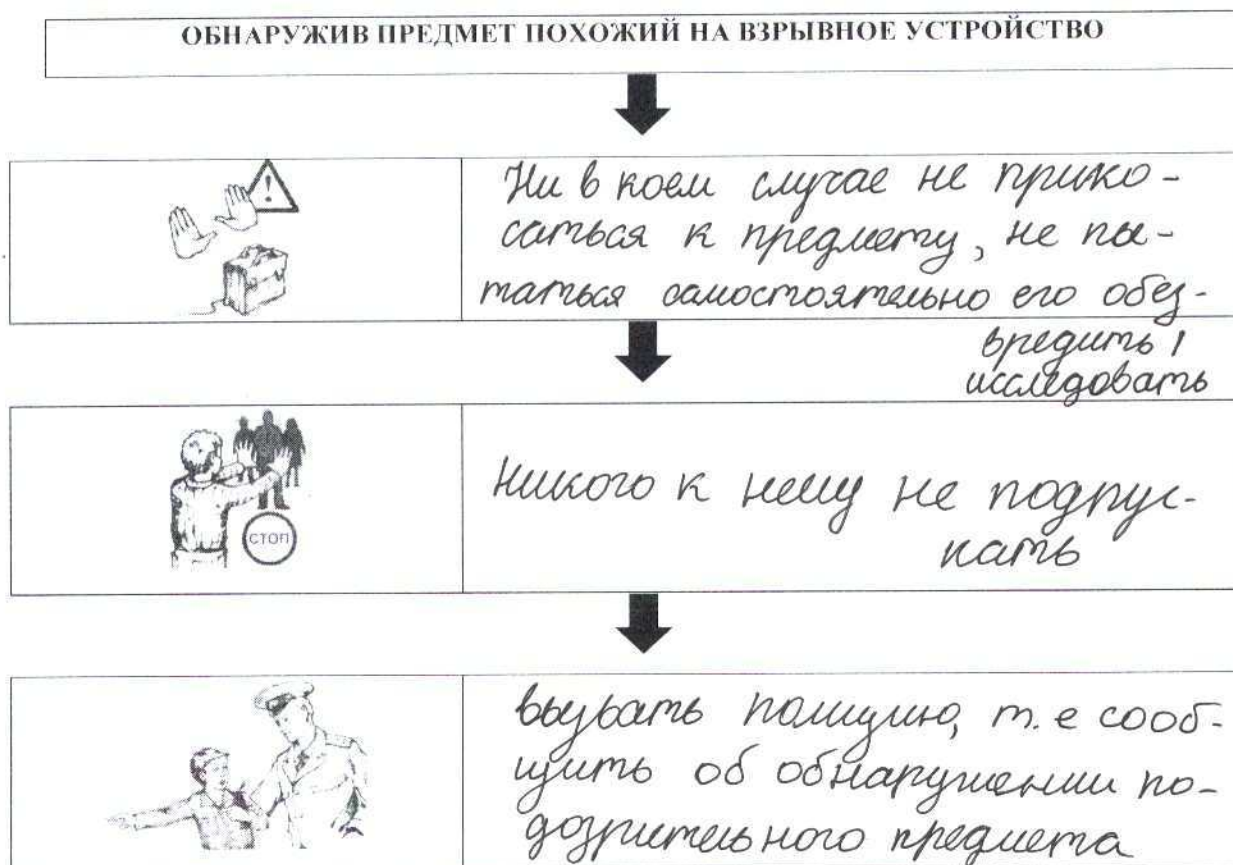 ОБНАРУЖИВ ПРЕДМЕТ ПОХОЖИЙ НА ВЗРЫВНОЕ УСТРОЙСТВО
!
Ни в коем случае не прико-
саться к предмету, не пы-
таться самостоятельно его обез-
вредить,
исследовать
СТОП
Никого к нему не подпус-
кать
вызвать полицию, т.е сооб-
щить об обнаружении по-
дозрительного предмета